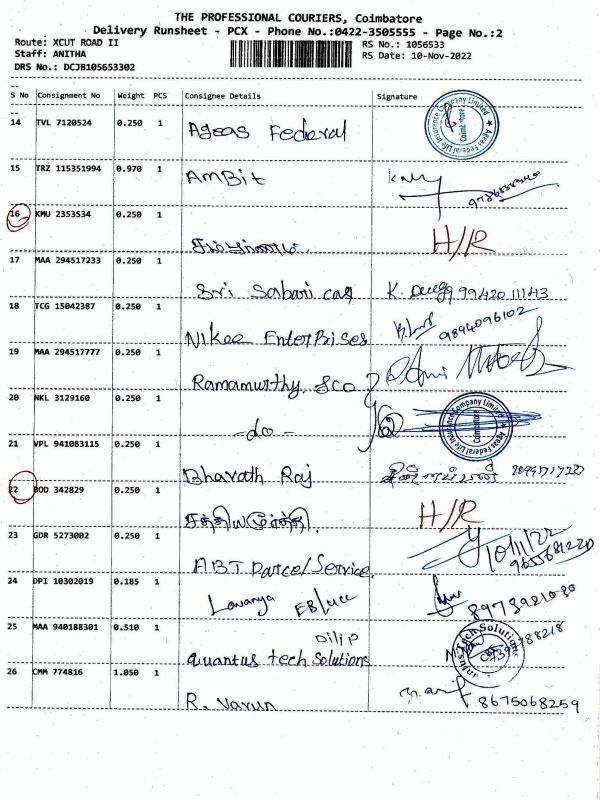 THE PROFESSIONAL COURIERS, Coimbatore
Delivery Runsheet - PCX - Phone No.:0422-3505555 - Page No.:2
Route: XCUT ROAD II
RS No.: 1056533
Staff: ANITHA
RS Date: 10-Nov-2022
DRS No.: DCJB105653302
S No Consignment No Weight PCS Consignee Details Signature
14 TVL 7120524 0.250 1 Ageas Federal
Ageas Federal Life Insurance Company Limited
15 TRZ 115351994 0.970 1 AMBit
16 KMU 2353534 0.250 1 H/R
17 MAA 294517233 0.250 1 Sri Sabari cag K. 99420 11143
18 TCG 15042387 0.250 1 Nikee Enterprises 9894096102
19 MAA 294517777 0.250 1 Ramamurthy &co
20 NKL 3129160 0.250 1 -do-
Ageas Federal Life Insurance Company Limited
21 VPL 941083115 0.250 1 Bharath Raj
22 BOD 342829 0.250 1 சத்தியமூர்த்தி H/R
23 GDR 5273002 0.250 1 ABT Parcel Service 10/11/22
24 DPI 10302019 0.185 1 Lavanya
25 MAA 940188301 0.510 1 Dilip
quantus tech solutions
26 CMM 774816 1.050 1 R. Varun 8675068259